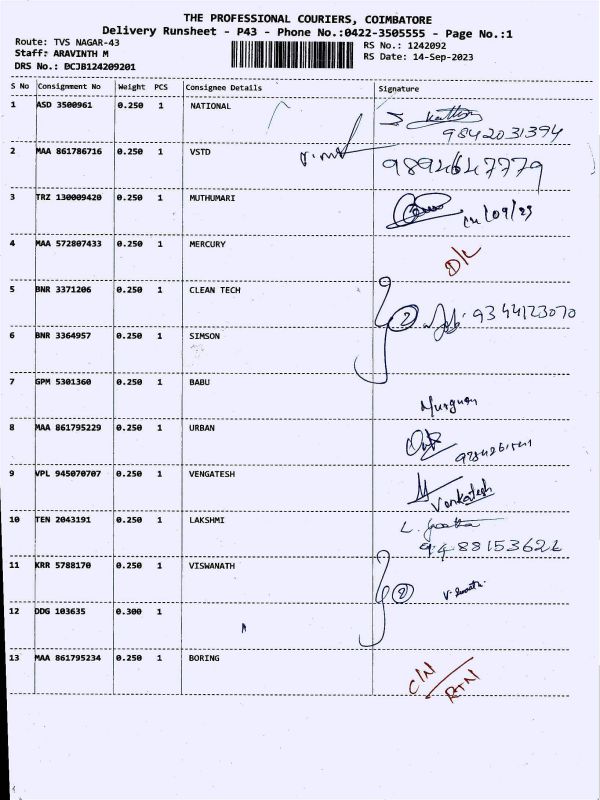 THE PROFESSIONAL COURIERS, COIMBATORE
Delivery Runsheet - P43 - Phone No.:0422-3505555 - Page No.:1
Route: TVS NAGAR-43
Staff: ARAVINTH M
DRS No.: BCJB124209201
RS No.: 1242092
RS Date: 14-Sep-2023
S No Consignment No Weight PCS Consignee Details Signature
1 ASD 3500961 0.250 1 NATIONAL
9842031394
2 MAA 861786716 0.250 1 VSTD
9894647779
3 TRZ 130009420 0.250 1 MUTHUMARI
14/09/23
4 MAA 572807433 0.250 1 MERCURY
D/L
5 BNR 3371206 0.250 1 CLEAN TECH
2 9344123070
6 BNR 3364957 0.250 1 SIMSON
7 GPM 5301360 0.250 1 BABU
Murgunan
8 MAA 861795229 0.250 1 URBAN
9 VPL 945070707 0.250 1 VENGATESH
Venkatesh
10 TEN 2043191 0.250 1 LAKSHMI
9488153622
11 KRR 5788170 0.250 1 VISWANATH
2
12 DDG 103635 0.300 1
13 MAA 861795234 0.250 1 BORING
C/N
R+N